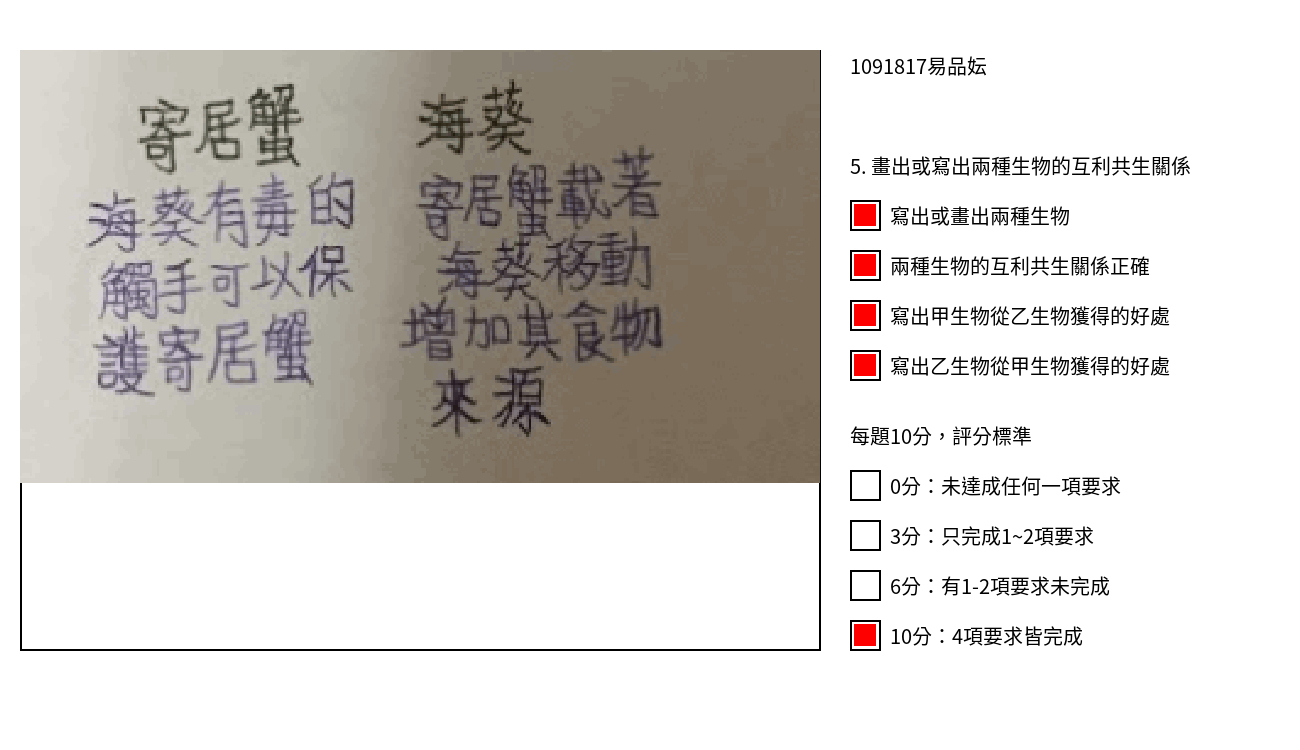 寄居蟹
海葵有毒的
觸手可以保
護寄居蟹
海葵
寄居蟹載著
海葵移動
增加其食物
來源
1091817易品妘
5. 畫出或寫出兩種生物的互利共生關係
寫出或畫出兩種生物
兩種生物的互利共生關係正確
寫出甲生物從乙生物獲得的好處
寫出乙生物從甲生物獲得的好處
每題10分，評分標準
0分：未達成任何一項要求
3分：只完成1~2項要求
6分：有1-2項要求未完成
10分：4項要求皆完成